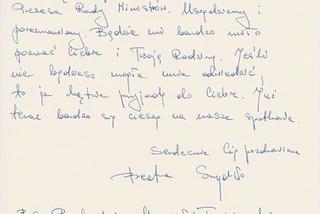 Prezesa Rady Ministrów. Usiądziemy i
porozmawiamy. Będzie mi bardzo miło
poznać Ciebie i Twoją Rodzinę. Jeśli
nie będziesz mogła mnie odwiedzić,
to ja chętnie przyjadę do Ciebie. Już
teraz bardzo się cieszę na nasze spotkanie.
Serdecznie Cię pozdrawiam
Beata Szydło